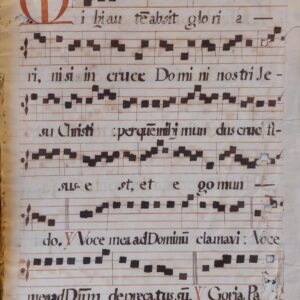 Mihi au tē absit glori a
ri, ni si in cruce Domi ni nostri Je-
su Christi : per quē mihj mun dus cruci fi-
xus- e st, et e go mun
do. V Voce mea ad Dominū clamavi : Voce
mea ad Dūm deprecatus sū. V Gloria P